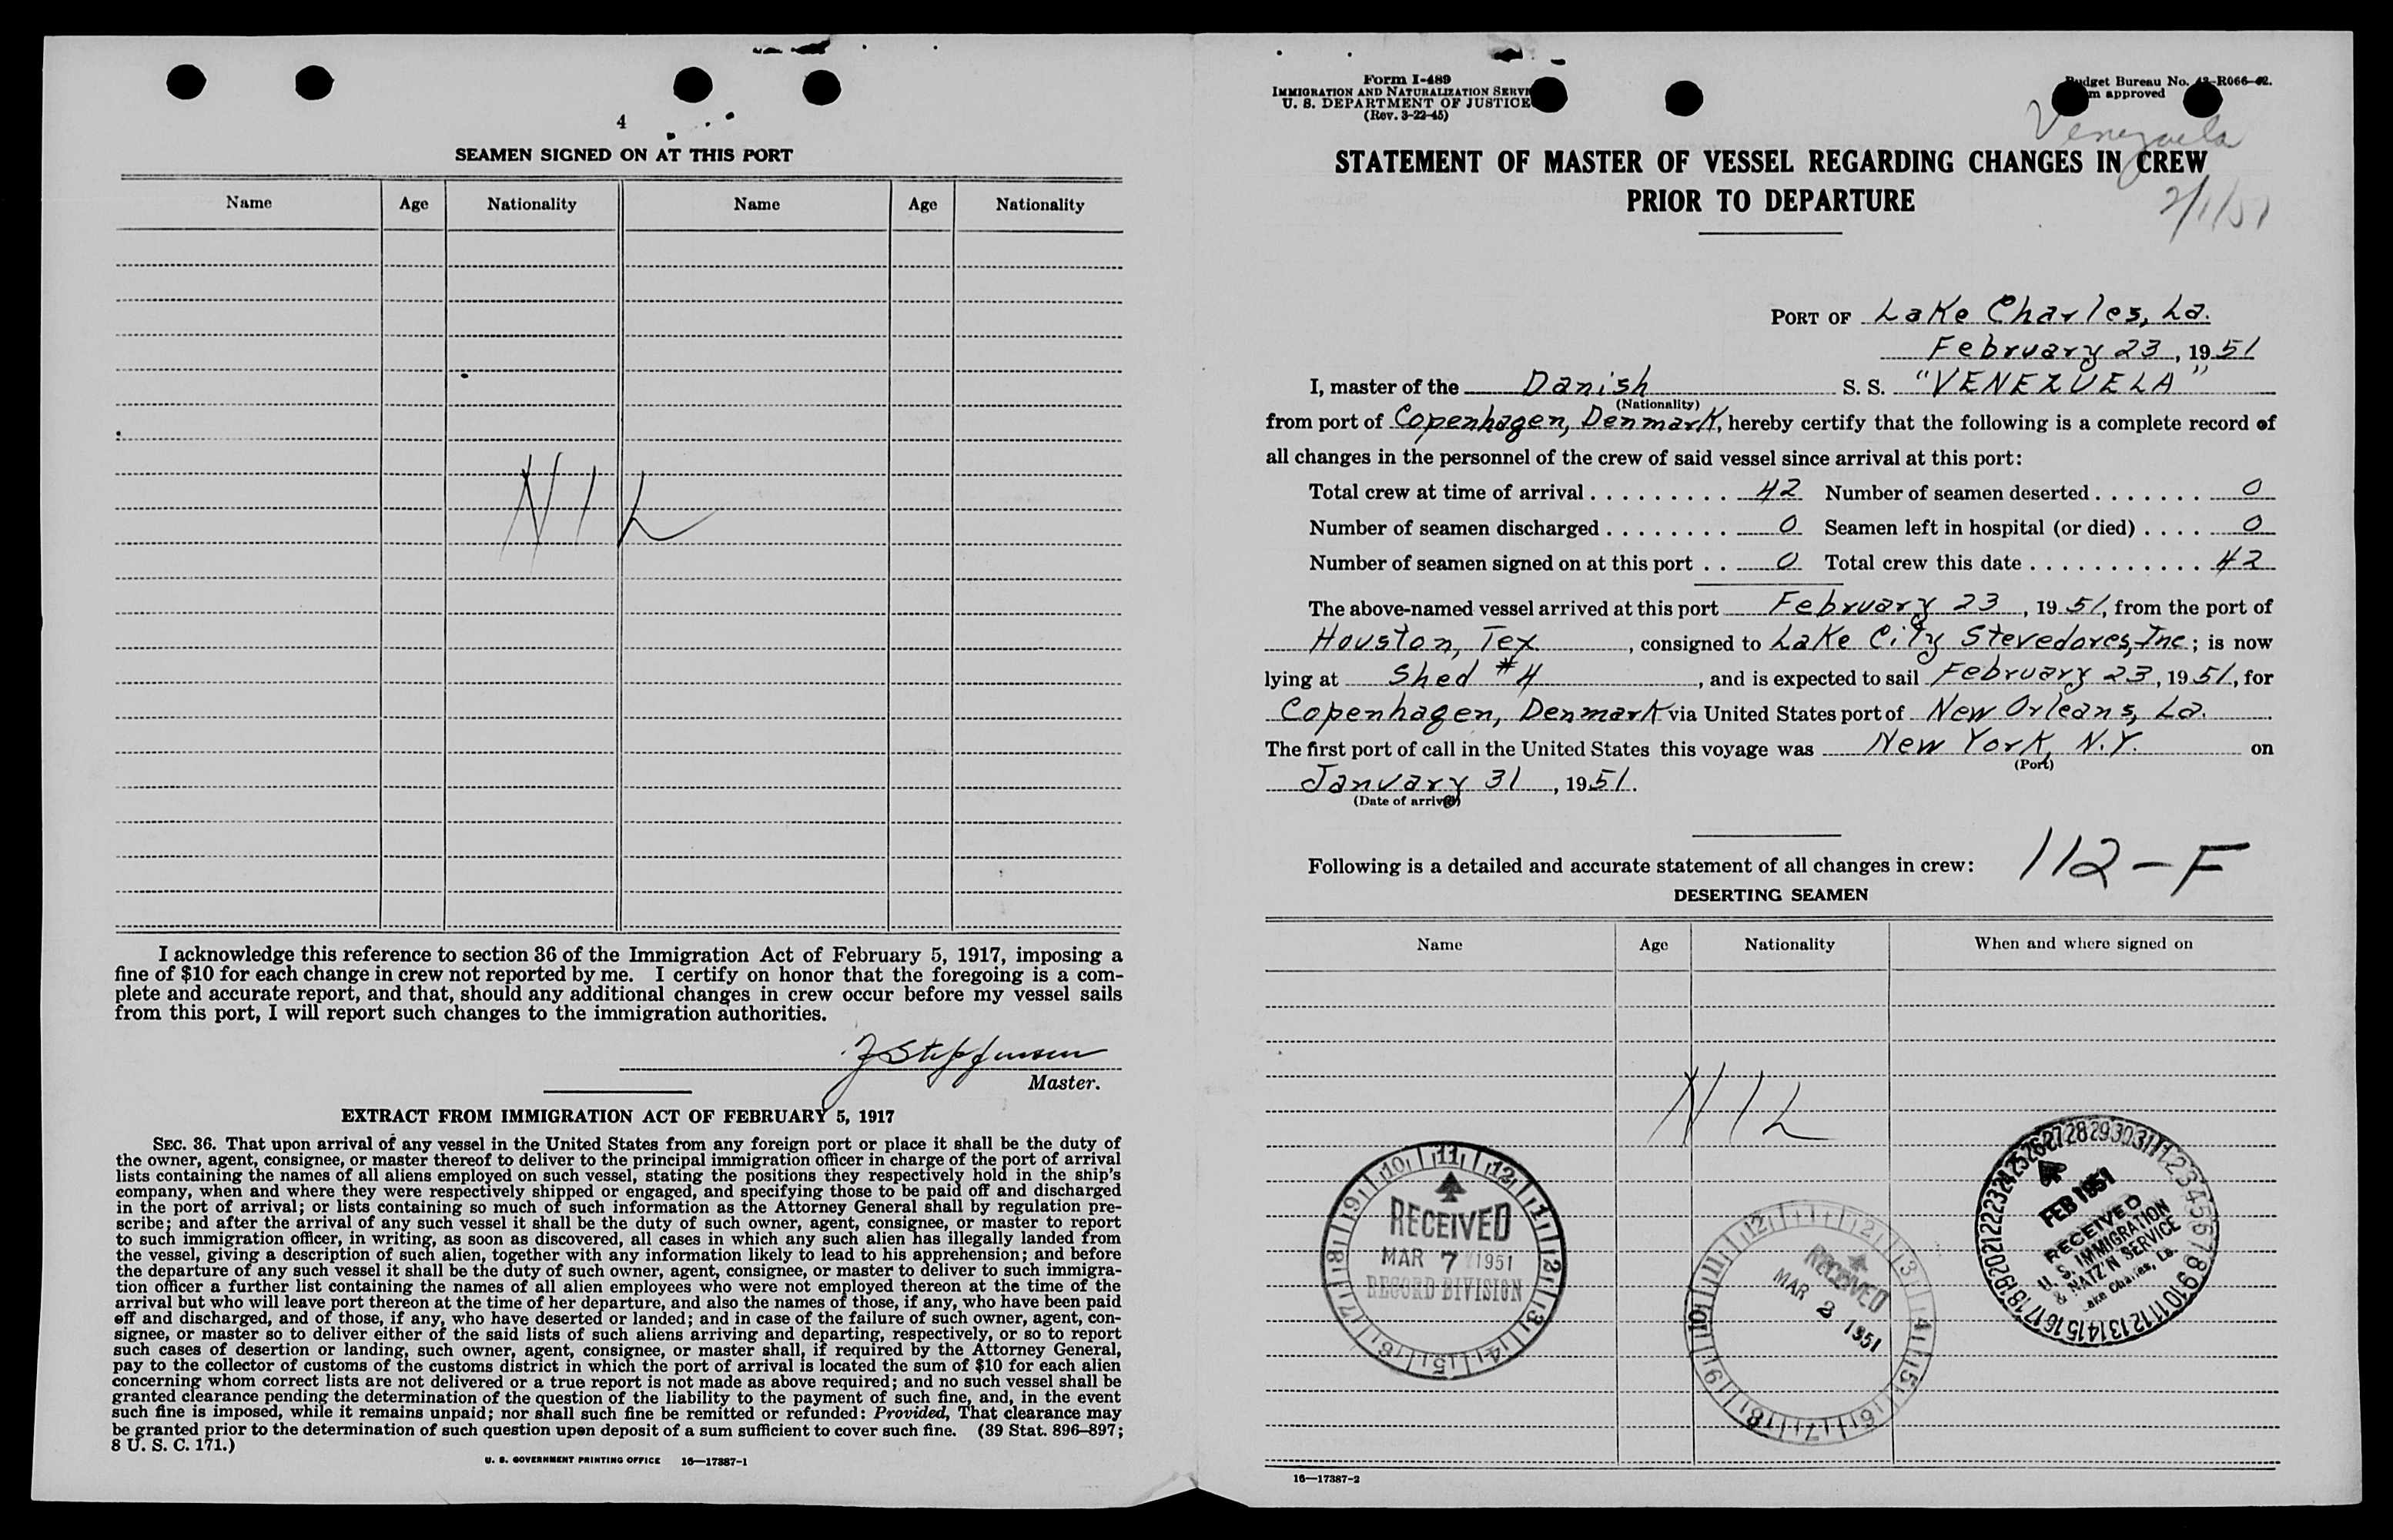 4
SEAMEN SIGNED ON AT THIS PORT
Name Age Nationality Name Age Nationality
NIL
I acknowledge this reference to section 36 of the Immigration Act of February 5, 1917, imposing a
fine of $10 for each change in crew not reported by me. I certify on honor that the foregoing is a com-
plete and accurate report, and that, should any additional changes in crew occur before my vessel sails
from this port, I will report such changes to the immigration authorities.
Master.
EXTRACT FROM IMMIGRATION ACT OF FEBRUARY 5, 1917
SEC. 36. That upon arrival of any vessel in the United States from any foreign port or place it shall be the duty of
the owner, agent, consignee, or master thereof to deliver to the principal immigration officer in charge of the port of arrival
lists containing the names of all aliens employed on such vessel, stating the positions they respectively hold in the ship's
company, when and where they were respectively shipped or engaged, and specifying those to be paid off and discharged
in the port of arrival; or lists containing so much of such information as the Attorney General shall by regulation pre-
scribe; and after the arrival of any such vessel it shall be the duty of such owner, agent, consignee, or master to report
to such immigration officer, in writing, as soon as discovered, all cases in which any such alien has illegally landed from
the vessel, giving a description of such alien, together with any information likely to lead to his apprehension; and before
the departure of any such vessel it shall be the duty of such owner, agent, consignee, or master to deliver to such immigra-
tion officer a further list containing the names of all alien employees who were not employed thereon at the time of the
arrival but who will leave port thereon at the time of her departure, and also the names of those, if any, who have been paid
off and discharged, and of those, if any, who have deserted or landed; and in case of the failure of such owner, agent, con-
signee, or master so to deliver either of the said lists of such aliens arriving and departing, respectively, or so to report
such cases of desertion or landing, such owner, agent, consignee, or master shall, if required by the Attorney General,
pay to the collector of customs of the customs district in which the port of arrival is located the sum of $10 for each alien
concerning whom correct lists are not delivered or a true report is not made as above required; and no such vessel shall be
granted clearance pending the determination of the question of the liability to the payment of such fine, and, in the event
such fine is imposed, while it remains unpaid; nor shall such fine be remitted or refunded: Provided, That clearance may
be granted prior to the determination of such question upon deposit of a sum sufficient to cover such fine. (39 Stat. 896–897;
8 U. S. C. 171.)
U. S. GOVERNMENT PRINTING OFFICE 16—17387-1
Form I-489
IMMIGRATION AND NATURALIZATION
U. S. DEPARTMENT OF JUSTICE
(Rev. 3-22-45)
Bureau No. R066
approved
Venezuela
2/1/51
STATEMENT OF MASTER OF VESSEL REGARDING CHANGES IN CREW
PRIOR TO DEPARTURE
PORT OF Lake Charles, La.
February 23, 1951
I, master of the Danish S. S. "VENEZUELA"
(Nationality)
from port of Copenhagen, Denmark, hereby certify that the following is a complete record of
all changes in the personnel of the crew of said vessel since arrival at this port:
Total crew at time of arrival . . . . . . . . . 42 Number of seamen deserted . . . . . . . 0
Number of seamen discharged . . . . . . . . 0 Seamen left in hospital (or died) . . . . 0
Number of seamen signed on at this port . . 0 Total crew this date . . . . . . . . . . . 42
The above-named vessel arrived at this port February 23, 1951, from the port of
Houston, Tex, consigned to Lake City Stevedores, Inc; is now
lying at Shed #4, and is expected to sail February 23, 1951, for
Copenhagen, Denmark via United States port of New Orleans, La.
The first port of call in the United States this voyage was New York, N.Y. on
(Port)
January 31, 1951.
(Date of arrival)
Following is a detailed and accurate statement of all changes in crew:
112-F
DESERTING SEAMEN
Name Age Nationality When and where signed on
NIL
RECEIVED
MAR 7 1951
RECORD DIVISION
RECEIVED
MAR 2 1951
FEB 1951
RECEIVED
U. S. IMMIGRATION
& NATZ'N SERVICE
Lake Charles, La.
16—17387-2